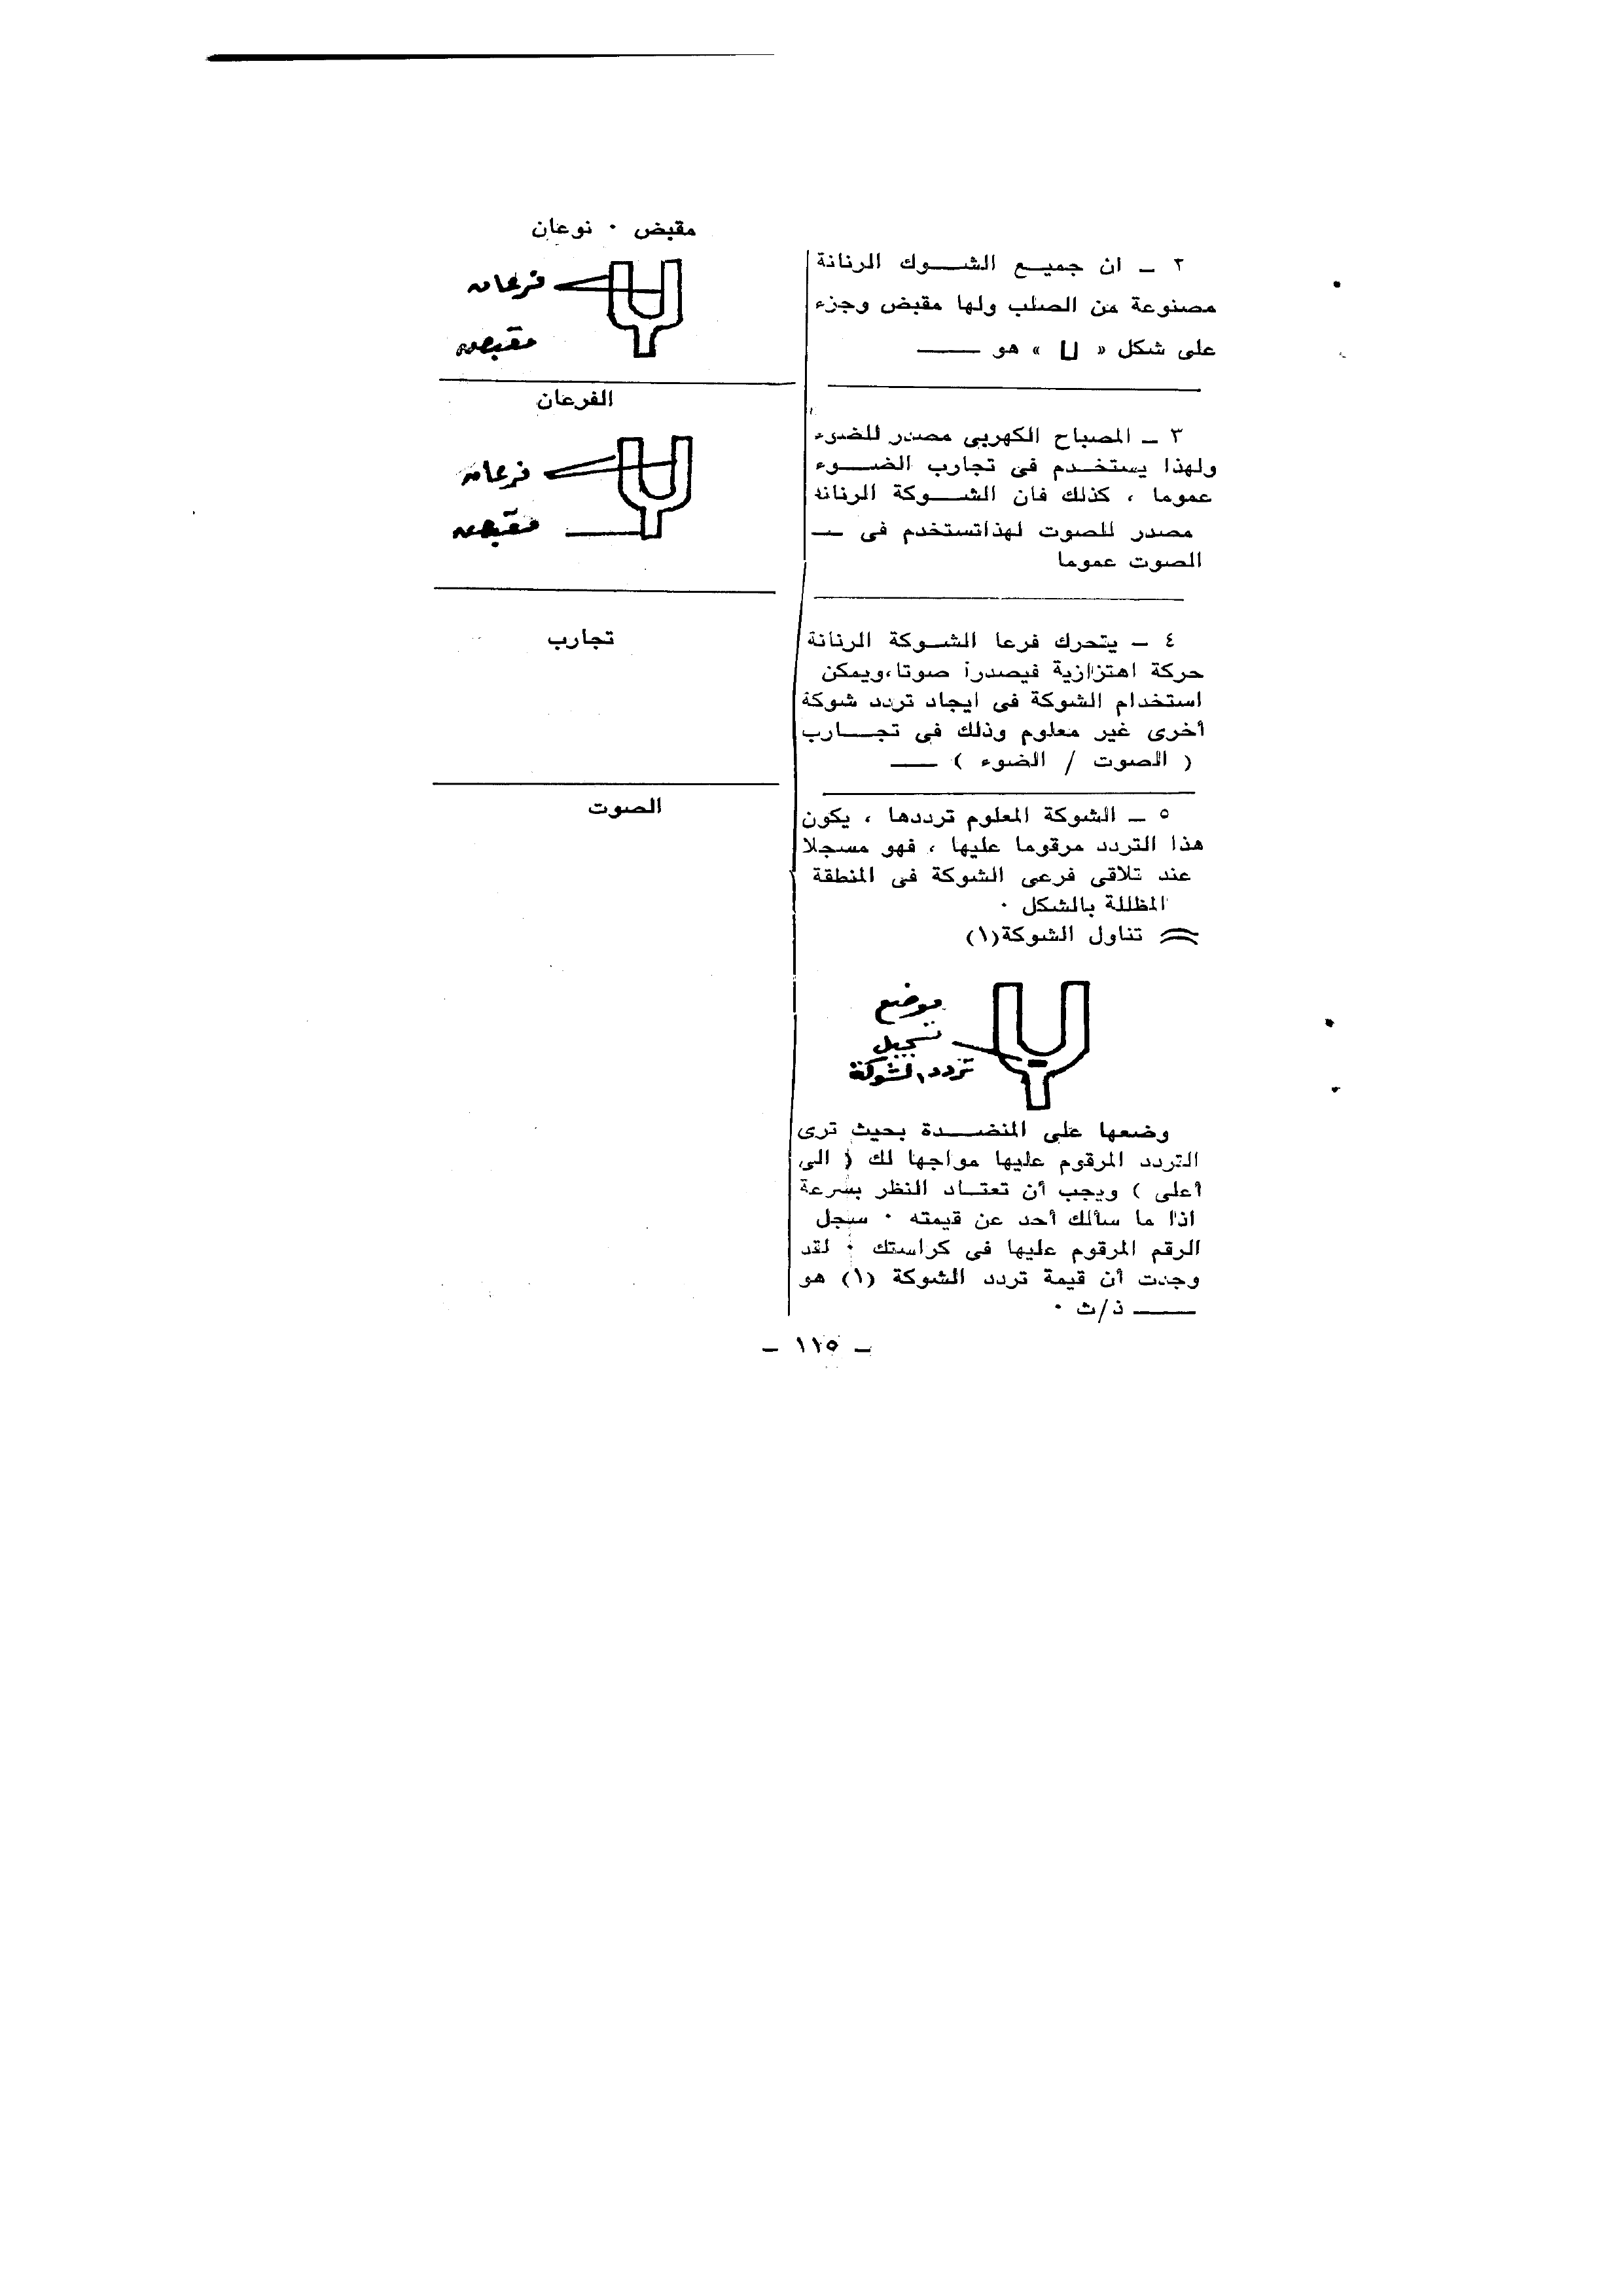 ٢ ـ ان جميع الشوك الرنانة
مصنوعة من الصلب ولها مقبض وجزء
على شكل « U » هو ـــــ
٣ ـ المصباح الكهربى مصدر للضوء
ولهذا يستخدم فى تجارب الضوء
عموما ، كذلك فان الشوكة الرنانة
مصدر للصوت لهذا تستخدم فى ــ
الصوت عموما
٤ ـ يتحرك فرعا الشوكة الرنانة
حركة اهتزازية فيصدرا صوتا، ويمكن
استخدام الشوكة فى ايجاد تردد شوكة
أخرى غير معلوم وذلك فى تجارب
( الصوت / الضوء ) ـــ
٥ ـ الشوكة المعلوم ترددها ، يكون
هذا التردد مرقوما عليها ، فهو مسجلا
عند تلاقى فرعى الشوكة فى المنطقة
المظللة بالشكل ٠
تناول الشوكة (١)
موضع
تسجيل
تردد الشوكة
وضعها على المنضدة بحيث ترى
التردد المرقوم عليها مواجها لك ( الى
أعلى ) ويجب أن تعتاد النظر بسرعة
اذا ما سألك أحد عن قيمته ٠ سجل
الرقم المرقوم عليها فى كراستك ٠ لقد
وجدت أن قيمة تردد الشوكة (١) هو
ـــــ ذ/ث ٠
مقبض ٠ نوعان
فرعان
مقبض
الفرعان
فرعان
مقبض
تجارب
الصوت
ـ ١١٥ ـ